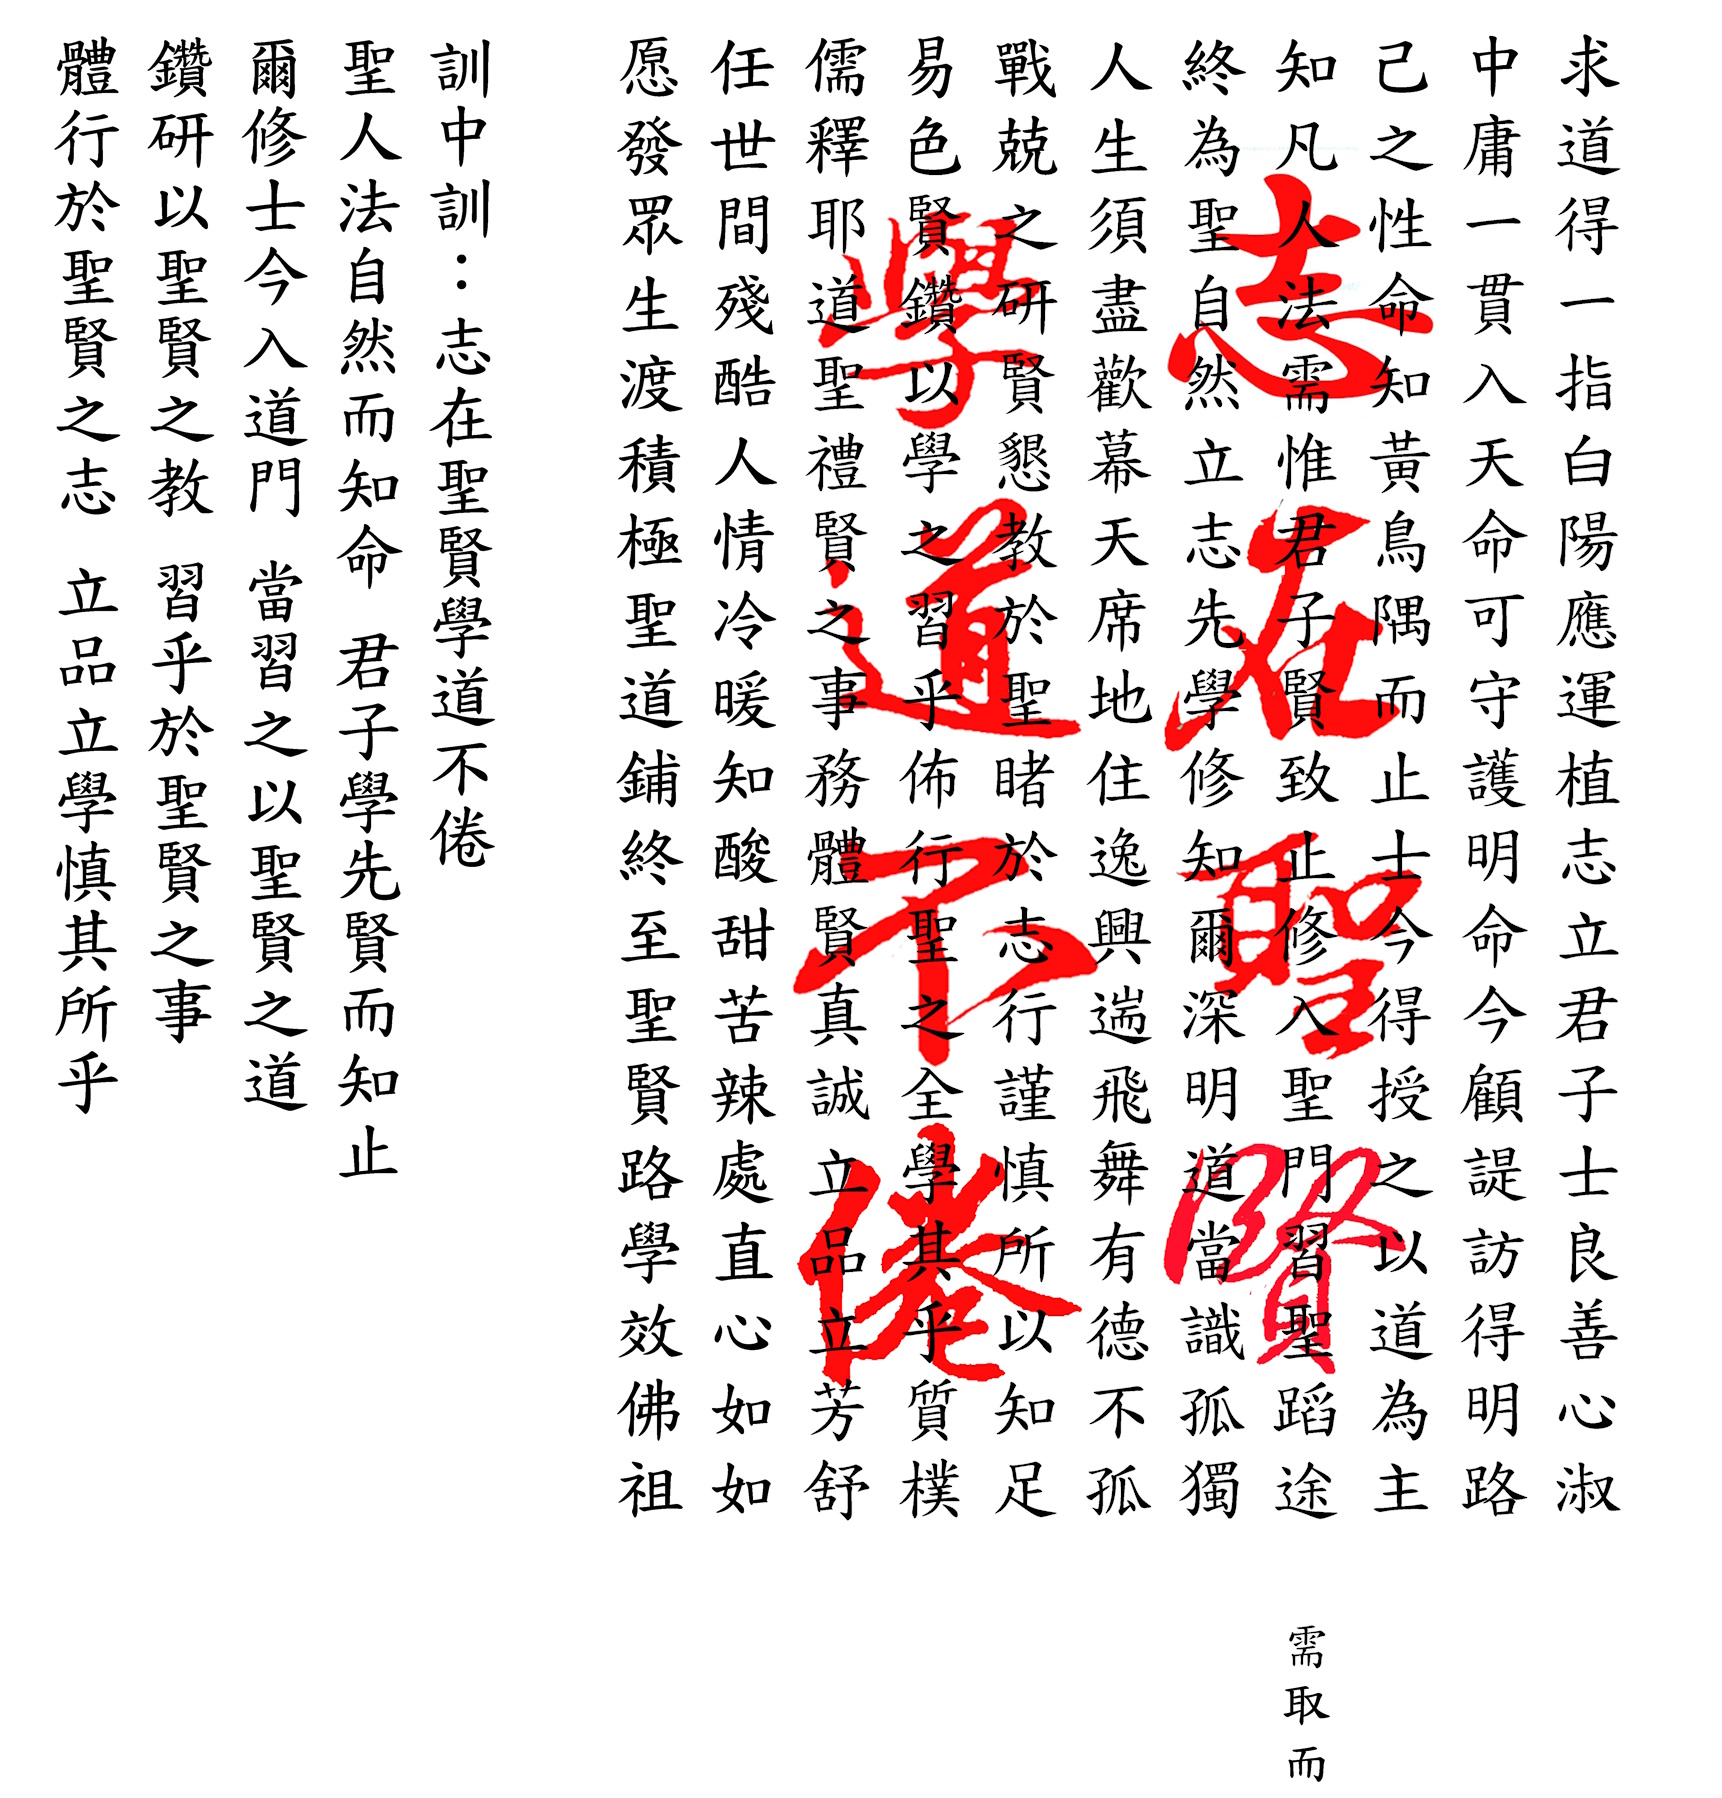 求道得一指白陽應運植志立君子士良善心淑
中庸一貫入天命可守護明命今顧諟訪得明路
己之性命知黃鳥隅而止士今得授之以道為主
知凡人法需惟君子賢致止修入聖門習聖蹈途
終為聖自然立志先學修知爾深明道當識孤獨
人生須盡歡幕天席地住逸興遄飛舞有德不孤
戰兢之研賢懇教於聖睹於志行謹慎所以知足
易色賢鑽以學之習乎佈行聖之全學其乎質樸
儒釋耶道聖禮賢之事務體賢真誠立品立芳舒
任世間殘酷人情冷暖知酸甜苦辣處直心如如
愿發眾生渡積極聖道鋪終至聖賢路學效佛祖
志在聖賢
學道不倦
需取而
訓中訓：志在聖賢學道不倦
聖人法自然而知命 君子學先賢而知止
爾修士今入道門 當習之以聖賢之道
鑽研以聖賢之教 習乎於聖賢之事
體行於聖賢之志 立品立學慎其所乎